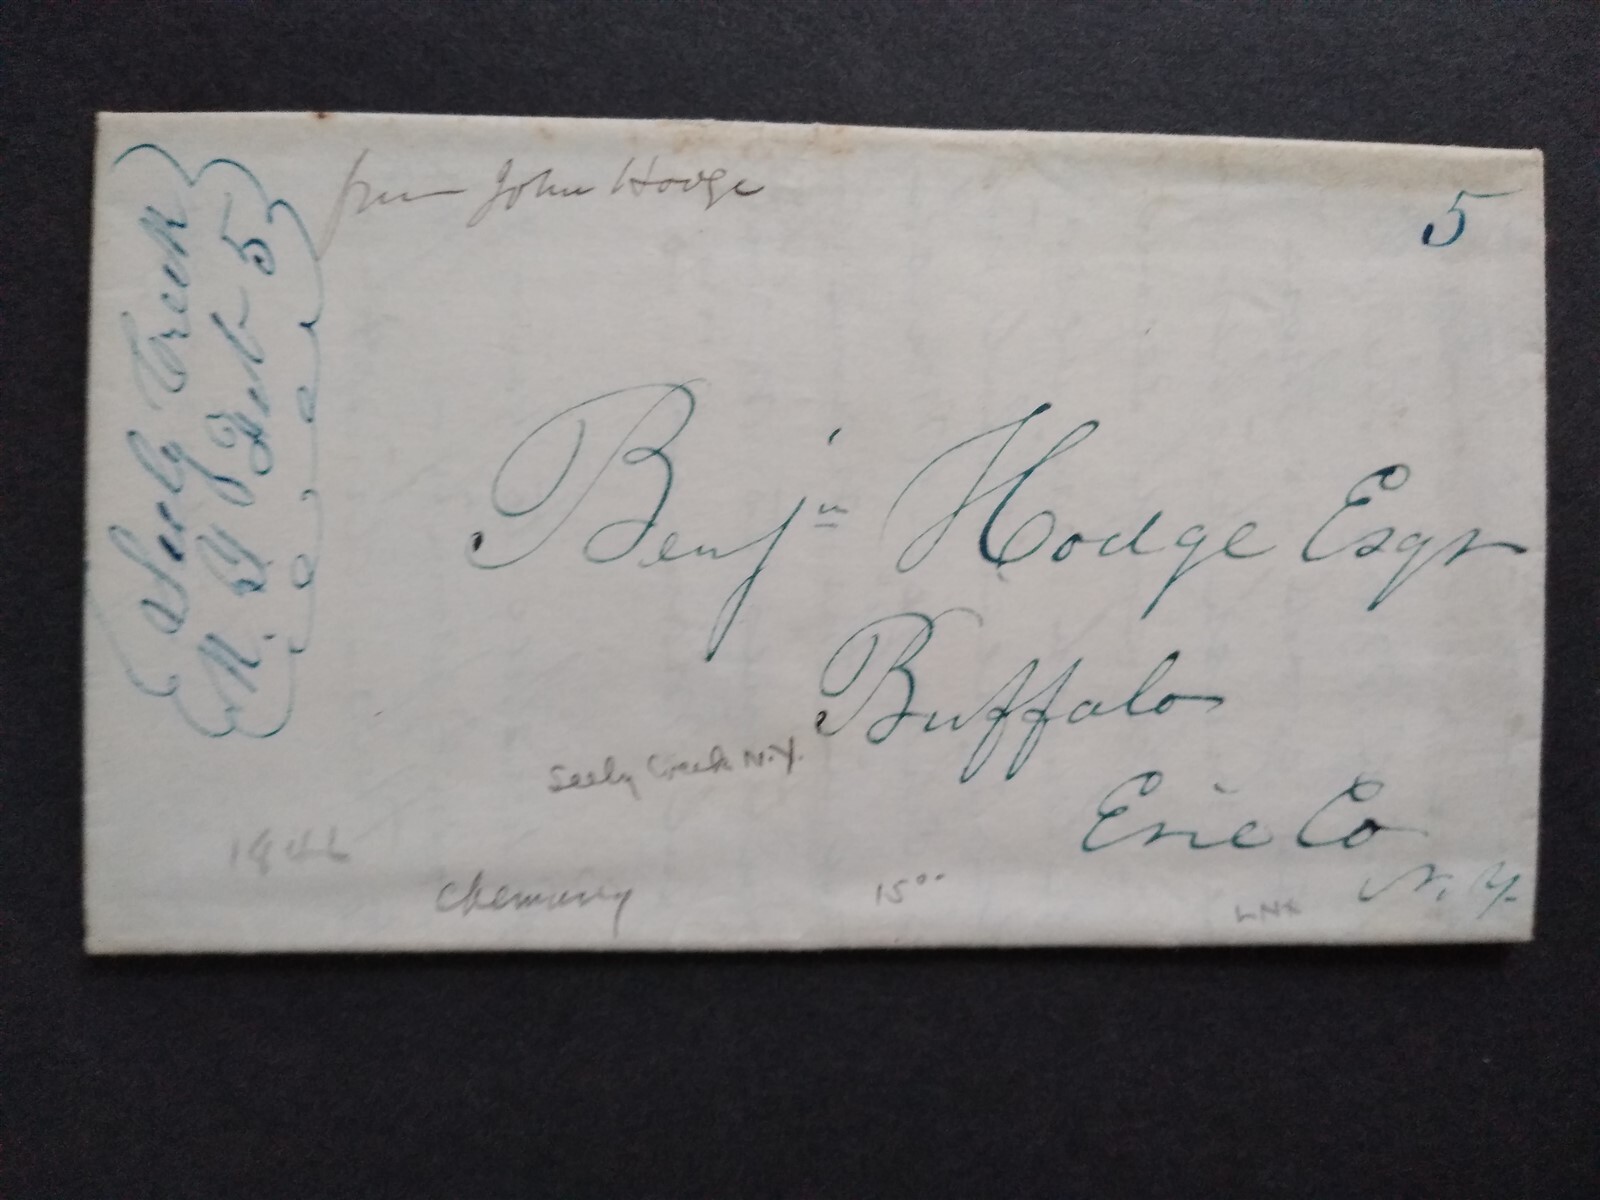 Seely Creek
N. Y Feb 5
from John Hodge
5
Benjn Hodge Esqr
Buffalo
Erie Co
N. Y.
Seely Creek N.Y.
1846
Chemung
1500